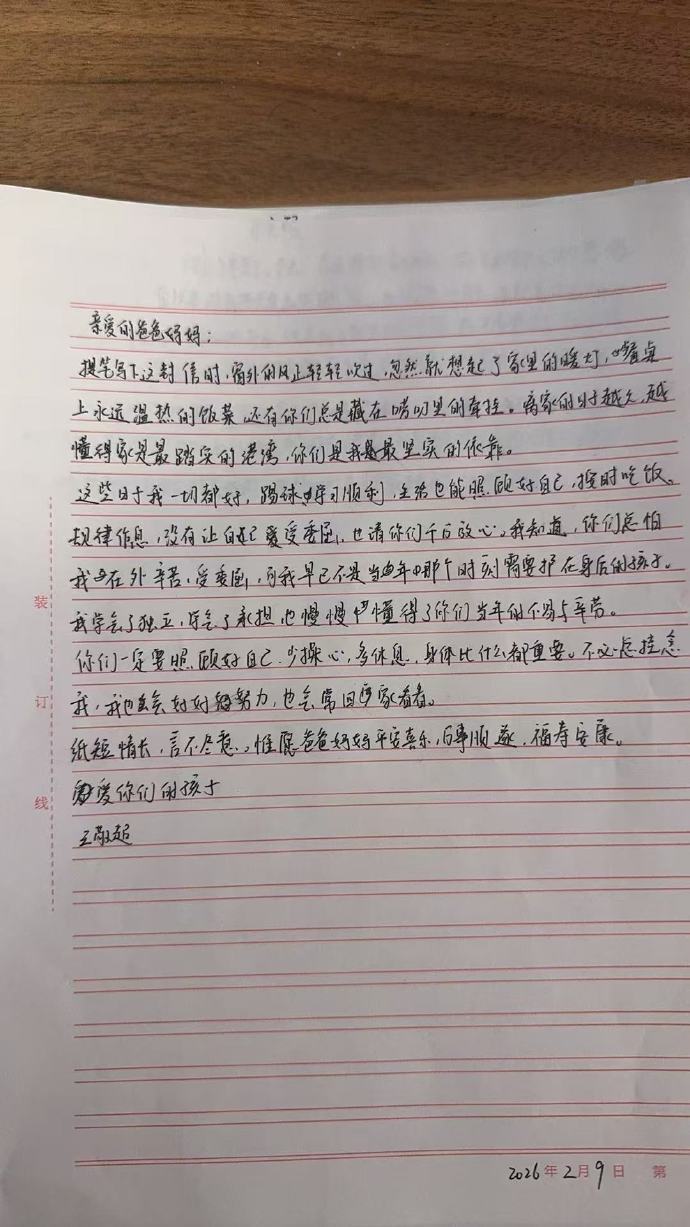 亲爱的爸爸妈妈：
提笔写下这封信时，窗外的风正轻轻吹过，忽然就想起了家里的暖灯，餐桌
上永远温热的饭菜，还有你们总是藏在唠叨里的牵挂。离家的日子越久，越
懂得家是最踏实的港湾，你们是我最坚实的依靠。
这些日子我一切都好，踢球学习顺利，生活也能照顾好自己，按时吃饭。
规律作息，没有让自己受委屈，也请你们千万放心。我知道，你们总怕
我在外辛苦，受委屈，可我早已不是当年那个时刻需要护在身后的孩子。
我学会了独立，学会了承担，也慢慢懂得了你们当年的不易与辛劳。
你们一定要照顾好自己，少操心，多休息，身体比什么都重要。不必总挂念
我，我也会好好努力，也会常回家看看。
纸短情长，言不尽意，惟愿爸爸妈妈平安喜乐，百事顺遂，福寿安康。
爱你们的孩子
王敬超
装
订
线
2026年2月9日 第